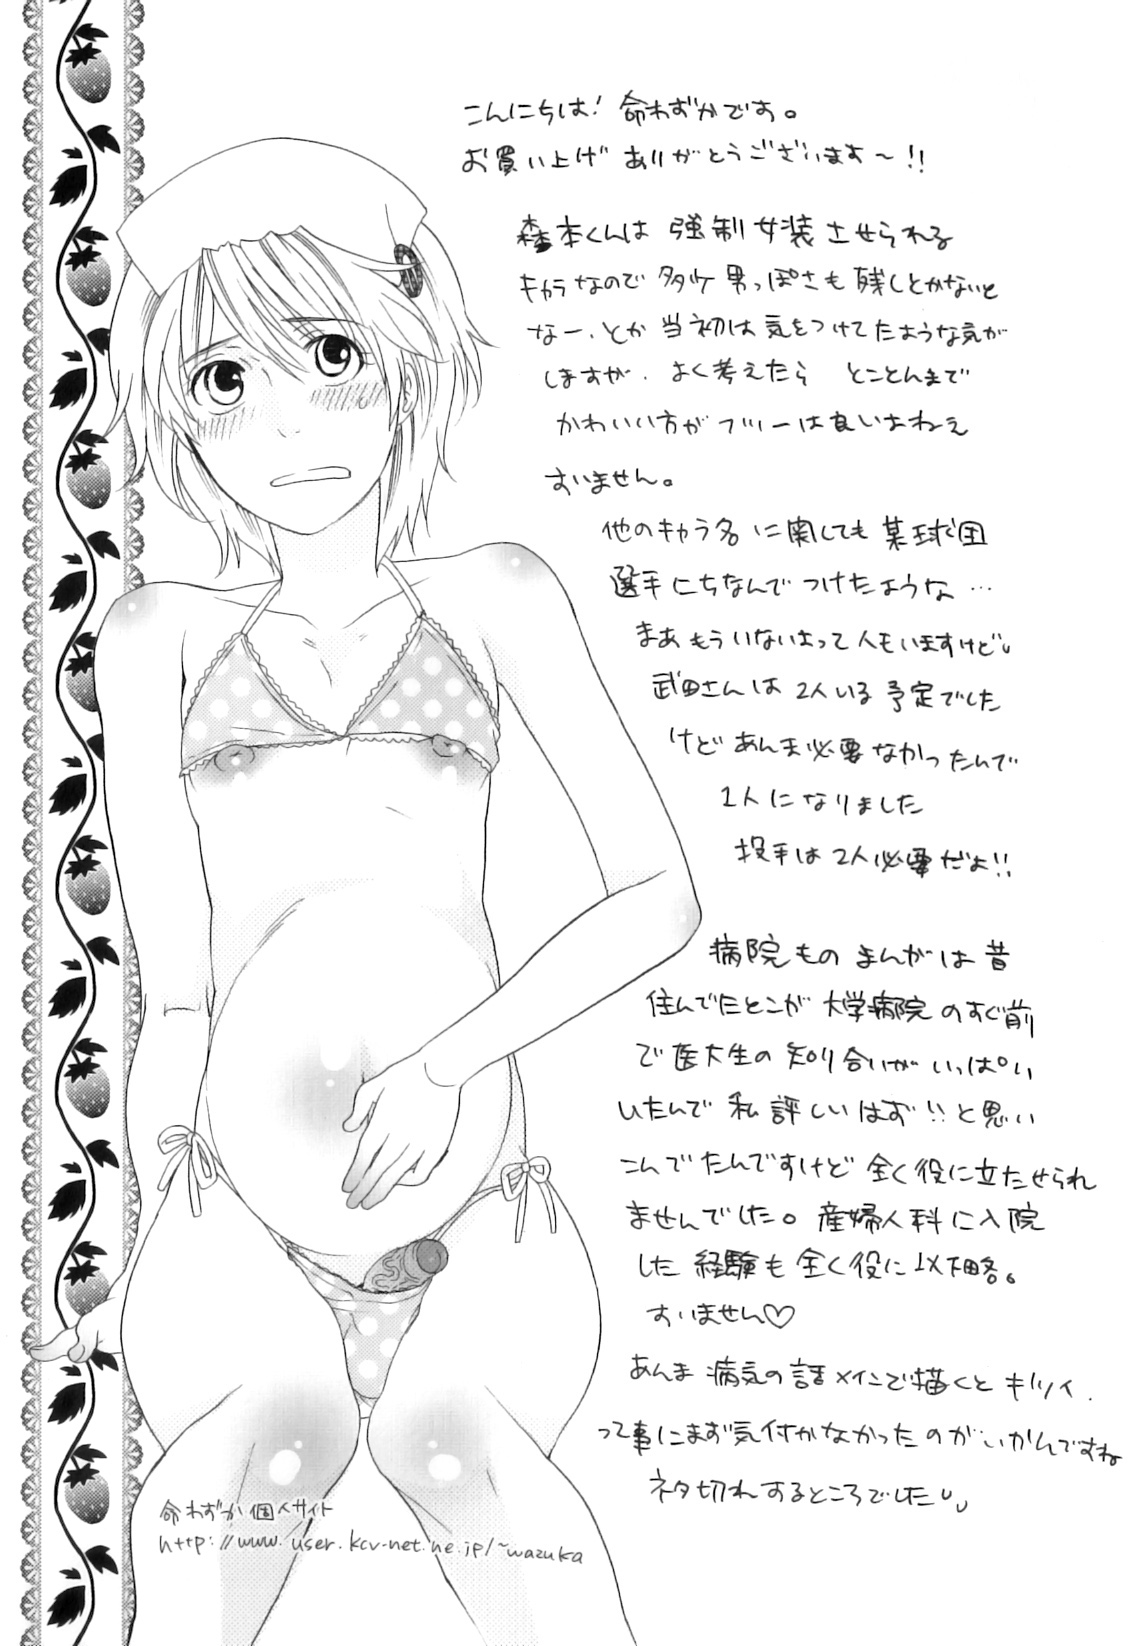 こんにちは！命わずかです。
お買い上げありがとうございます〜！！
森本くんは強制女装させられる
キャラなので多少男っぽさも残しとかないと
なー、とか当初は気をつけてたような気が
しますが、よく考えたらとことんまで
かわいい方がフツーは良いよねぇ
すいません。
他のキャラ名に関しても某球団
選手にちなんでつけたような…
まあもういないよって人もいますけど
武田さんは2人いる予定でした
けどあんま必要なかったんで
1人になりました
投手は2人必要だよ！！
病院ものまんがは昔
住んでたとこが大学病院のすぐ前
で医大生の知り合いがいっぱい
いたんで私詳しいはず！！と思い
こんでたんですけど全く役に立たせられ
ませんでした。産婦人科に入院
した経験も全く役に以下略。
すいません♡
あんま病気の話メインで描くとキツイ、
って事にまず気付かなかったのがいかんですね
ネタ切れするところでした
命わずか個人サイト
http://www.user.kcv-net.ne.jp/~wazuka